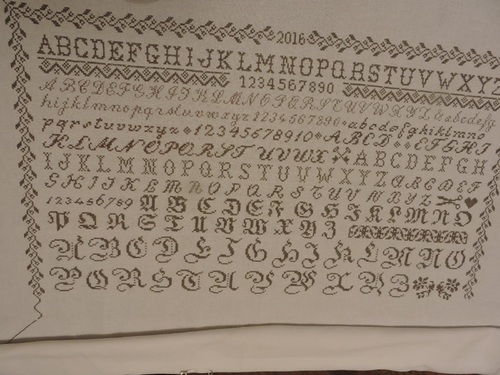 2016
ABCDEFGHIJKLMNOPQRSTUVWXYZ
1234567890
ABCDEFGHIJKLMNOPQRSTUVWXYZabcdefg
hijklmnopqrstuvwxyz1234567890abcdefghiklmno
parstuvwxyz1234567890ABCDEFGHI
KLMNOPQRST UVWXYZ ABCDEFGH
IJKLMNOPQRSTUVWXYZ ABCDEF
GHIJKLMNOPQRSTUVWXYZ
123456789 ABCDEFGHIKLMNO
PQRSTUVWXYZ
ABCDEFGHIKLMNO
PQRSTUVWXYZ